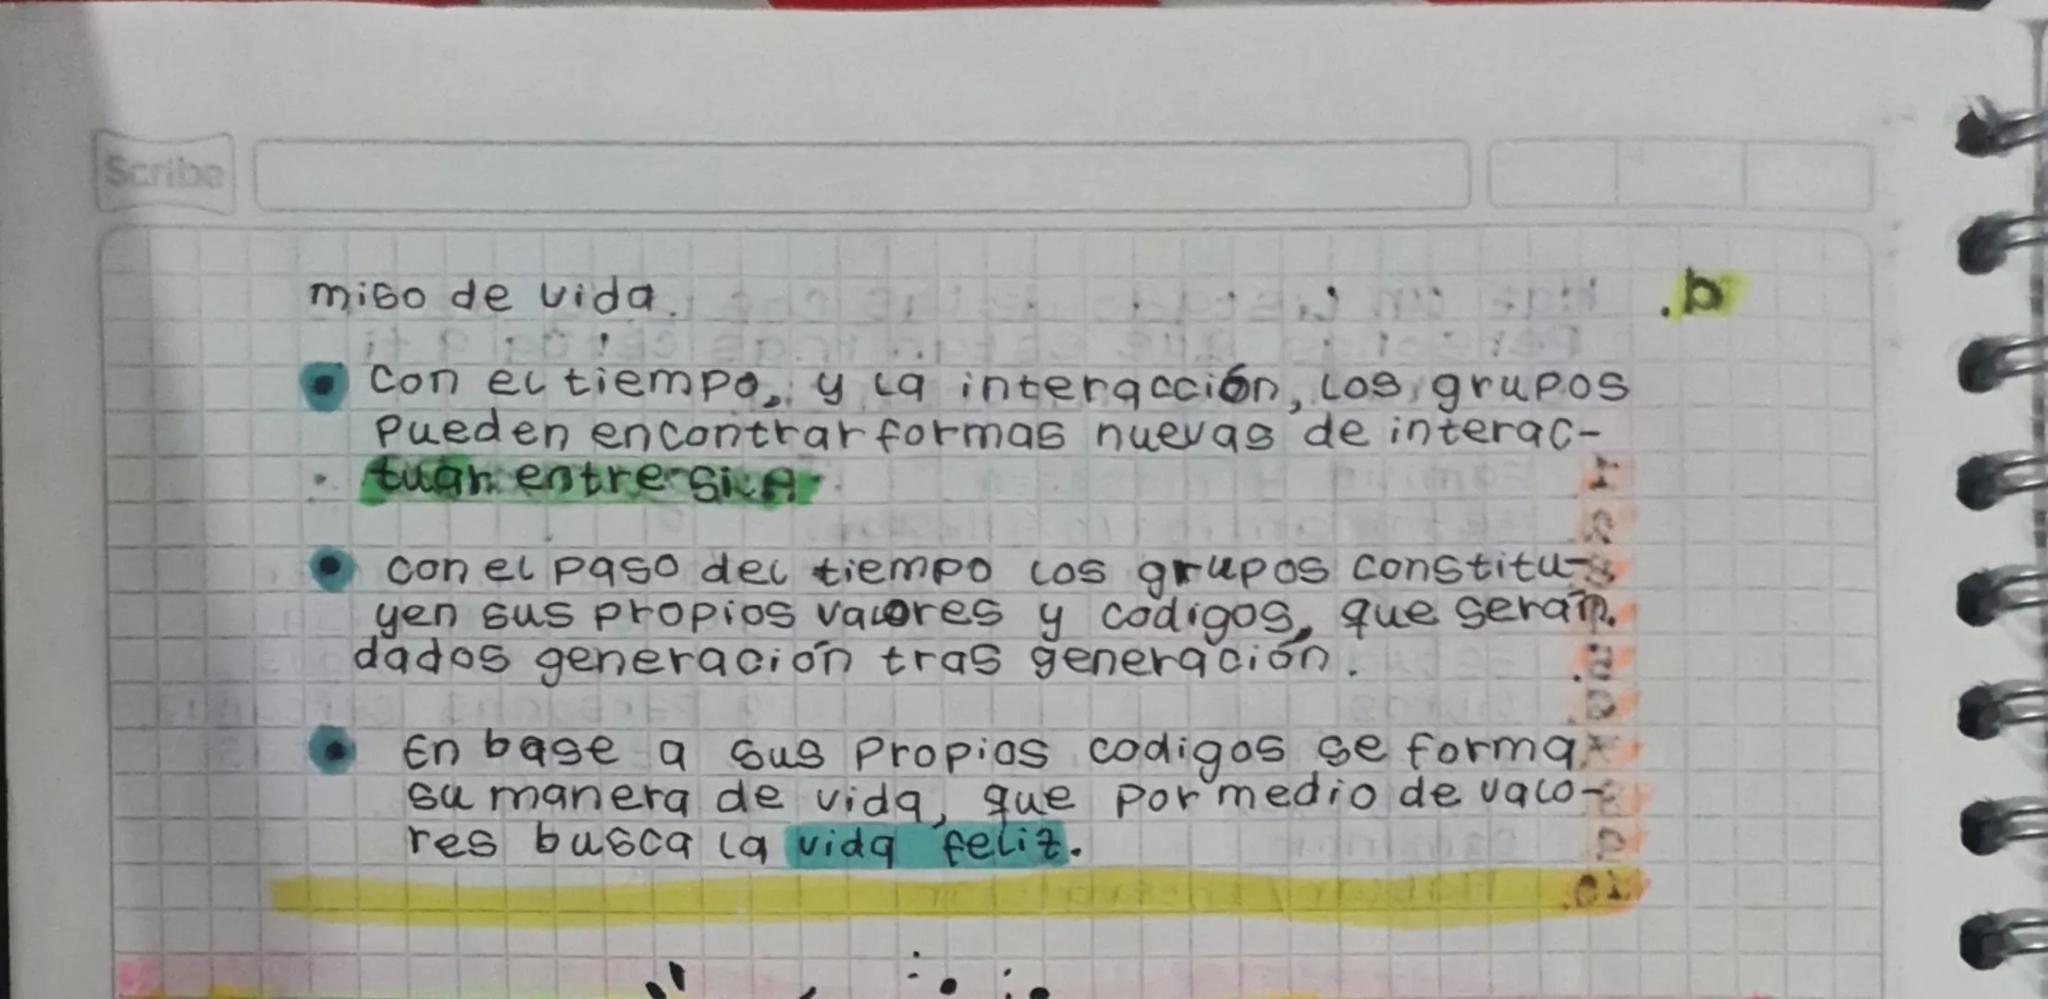 Scribe
miso de vida.
• con el tiempo, y la interacción, los grupos
pueden encontrar formas nuevas de interac-
tuar entre si.
• con el paso del tiempo los grupos constitu-
yen sus propios valores y codigos, que serán
dados generación tras generación.
• En base a sus propios codigos se forma
su manera de vida, que por medio de valo-
res busca la vida feliz.